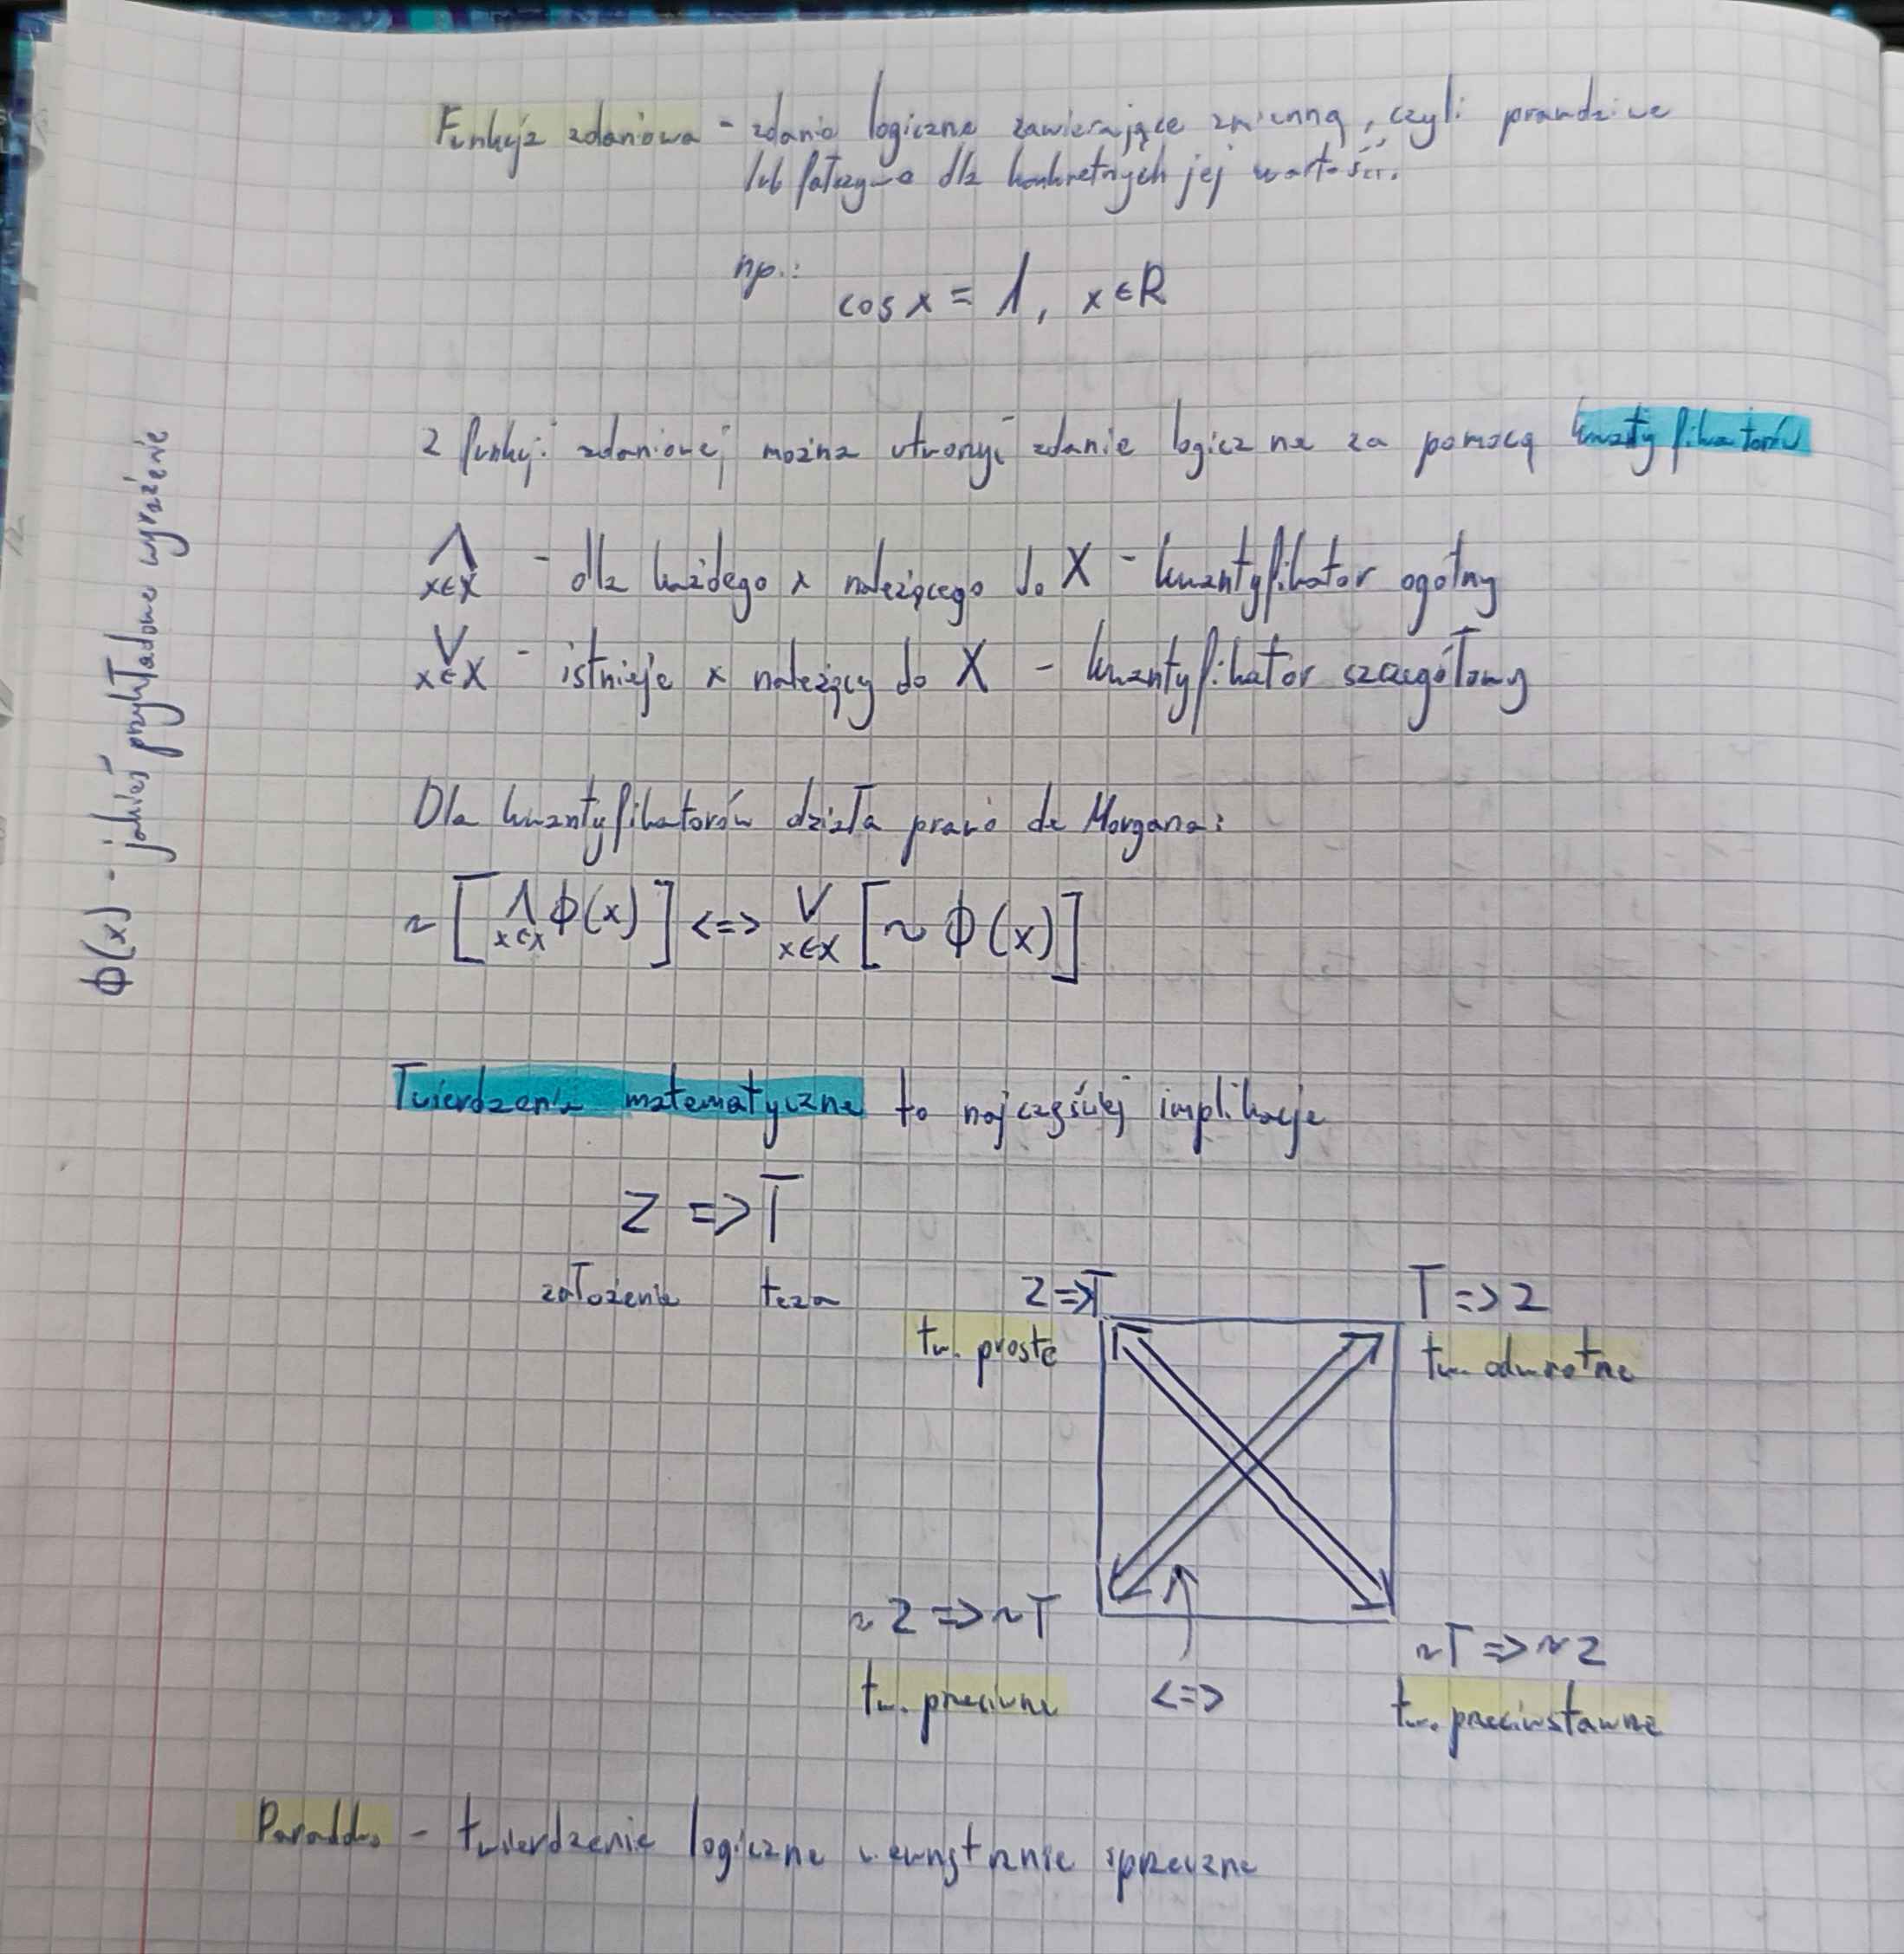 Funkcja zdaniowa - zdanie logiczne zawierające zmienną, czyli prawdziwe
lub fałszywe dla konkretnych jej wartości.
np.:
cos x = 1, x ∈ R
Z funkcji zdaniowej można utworzyć zdanie logiczne za pomocą kwantyfikatorów
⋀ - dla każdego x należącego do X - kwantyfikator ogólny
x∈X
⋁ - istnieje x należący do X - kwantyfikator szczegółowy
x∈X
ϕ(x) - jakieś przykładowe wyrażenie
Dla kwantyfikatorów działa prawo de Morgana:
~ [ ⋀ ϕ(x) ] <=> ⋁ [ ~ ϕ(x) ]
x∈X x∈X
Twierdzenia matematyczne to najczęściej implikacje
Z => T
założenie teza
Z => T T => Z
tw. proste tw. odwrotne
~Z => ~T ~T => ~Z
tw. przeciwne <=> tw. przeciwstawne
Paradoks - twierdzenie logiczne wewnętrznie sprzeczne